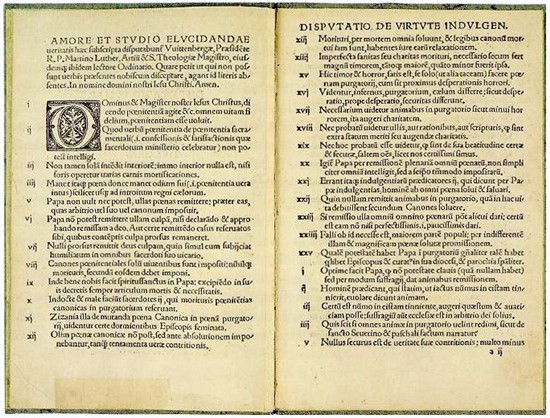 AMORE ET STVDIO ELVCIDANDAE
ueritatis hæc subscripta disputabunť Vuittenbergæ, Præsidēte
R. P. Martino Luther, Artiū & S. Theologiæ Magistro, eius-
demq́; ibidem lectore Ordinario. Quare petit ut qui non pos-
sunt uerbis præsentes nobiscum disceptare, agant id literis ab-
sentes. In nomine domini nostri Iesu Christi. Amen.
i DOminus & Magister noster Iesus Christus, di-
cendo pœnitentiā agite &c. omnem uitam fi
delium, pœnitentiam esse uoluit.
ij Quod uerbū pœnitentia de pœnitentia sacra-
mentali (.i. confessionis & satisfactionis quæ
sacerdotum ministerio celebratur) non po-
test intelligi.
iij Non tamen solā intēdit interiorē: immo interior nulla est, nisi
foris operetur uarias carnis mortificationes.
iiij Manet itaq; pœna donec manet odium sui, (.i. pœnitentia uera
intus) scilicet usq; ad introitum regni cælorum.
v Papa non uult nec potest, ullas pœnas remittere: præter eas,
quas arbitrio uel suo uel canonum imposuit.
vj Papa nō potest remittere ullam culpā, nisi declarādo & appro-
bando remissam a deo. Aut certe remittēdo casus reseruatos
sibi, quibus cōtēptis culpa prorsus remaneret.
vij Nulli prorsus remittit deus culpam, quin simul eum subijciat
humiliatum in omnibus sacerdoti suo uicario.
viij Canones pœnitentiales solū uiuentibus sunt impositi: nihilq;
morituris, secundū eosdem debet imponi.
ix Inde bene nobis facit spiritussanctus in Papa: excipiēdo in su-
is decretis semper articulum mortis & necessitatis.
x Indocte & male faciūt sacerdotes ij, qui morituris pœnitētias
canonicas in purgatorium reseruant.
xj Zizania illa de mutanda pœna Canonica in pœnam purgato-
rij, uidentur certe dormientibus Episcopis seminata.
xij Olim pœnæ canonicæ nō post, sed ante absolutionem impo-
nebantur, tanq̃ tentamenta ueræ contritionis.
DISPVTATIO DE VIRTVTE INDVLGEN.
xiij Morituri, per mortem omnia soluunt, & legibus canonū mor-
tui iam sunt, habentes iure earū relaxationem.
xiiij Imperfecta sanitas seu charitas morituri, necessario secum fert
magnū timorem, tantoq; maiorē, quāto minor fuerit ipsa.
xv Hic timor & horror, satis est, se solo (ut alia taceam) facere pœ-
nam purgatorij, cum sit proximus desperationis horrori.
xvj Videntur, infernus, purgatorium, cælum differre: sicut despe-
ratio, prope desperatio, securitas differunt.
xvij Necessarium uidetur animabus in purgatorio sicut minui hor-
rorem, ita augeri charitatem.
xviij Nec probatū uidetur ullis, aut rationibus, aut scripturis, q̃ sint
extra statum meriti seu augendæ charitatis.
xix Nec hoc probatū esse uidetur, q̃ sint de sua beatitudine certæ
& securæ, saltem oēs, licet nos certissimi simus.
xx Igiť Papa per remissionē plenariā omniū pœnarū, non simpli-
citer omniū intelligit, sed a seipso tātummodo impositarū.
xxj Errant itaq; indulgentiarū prædicatores ij, qui dicunt per Pa-
pæ indulgentias, hominē ab omni pœna solui & saluari.
xxij Quin nullam remittit animabus in purgatorio, quā in hac ui-
ta debuissent secundum Canones soluere.
xxiij Si remissio ulla omniū omnino pœnarū pōt alicui dari: certū
est eam nō nisi perfectissimis .i. paucissimis dari.
xxiiij Falli ob id necesse est, maiorem partē populi: per indifferentē
illam & magnificam pœnæ solutæ promissionem.
xxv Qualē potestatē habet Papa in purgatoriū gñaliter talē habet
quilibet Episcopus & Curatus in sua diocesi, & parochia spāliter.
i Optime facit Papa, q̃ nō potestate clauis (quā nullam habet)
sed per modum suffragij, dat animabus remissionem.
ij Hominē prædicant, qui statim, ut iactus nūmus in cistam tin-
nierit, euolare dicunt animam.
iij Certū est nūmo in cistam tinniente, augeri quæstum & auari-
ciam posse: suffragiū aūt ecclesiæ est in arbitrio dei solius.
iiij Quis scit si omnes animæ in purgatorio uelint redimi, sicut de
sancto Seuerino & paschali factum narratur.
v Nullus securus est de ueritate suæ contritionis: multo minus
a ij